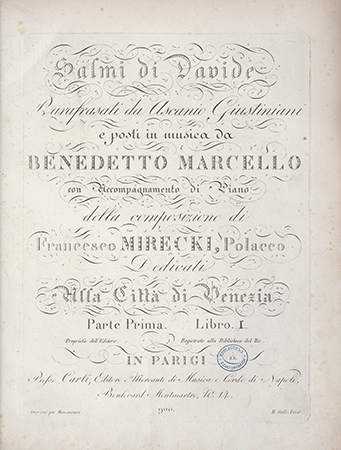 Salmi di Davide
Parafrasati da Ascanio Giustiniani
e posti in musica da
BENEDETTO MARCELLO
con Accompagnamento di Piano
della composizione di
Francesco MIRECKI, Polacco
Dedicati
Alla Città di Venezia
Parte Prima. Libro I.
Proprietà dell'Editore Registrato alla Biblioteca del Re
IN PARIGI
Carli, Editore Mercante di Musica e Corde di Napoli,
Boulevard Montmartre, N. 14.
900.